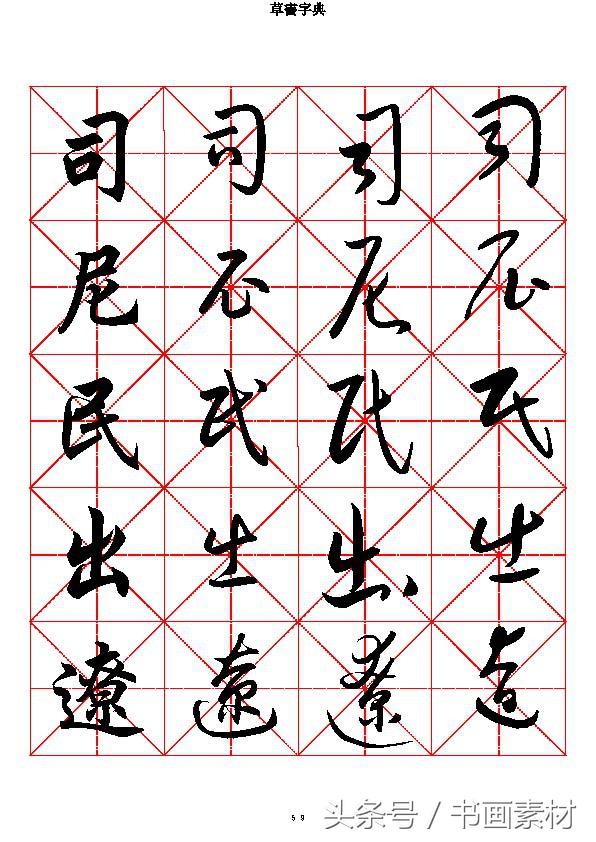 草書字典
司 司 司 司
尼 尼 尼 尼
民 民 民 民
出 出 出 出
遼 遼 遼 遼
59
头条号 / 书画素材